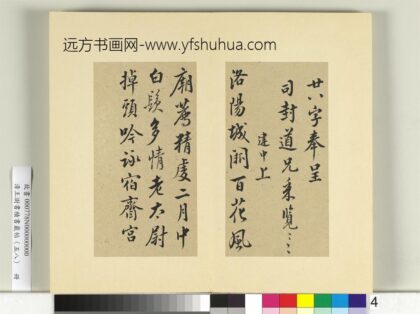 远方书画网-www.yfshuhua.com
廿八字奉呈
司封道兄来览
建中上
洛阳城闹百花风
廟薦精虔二月中
白鬚多情老太尉
掉頭吟詠宿齋宫